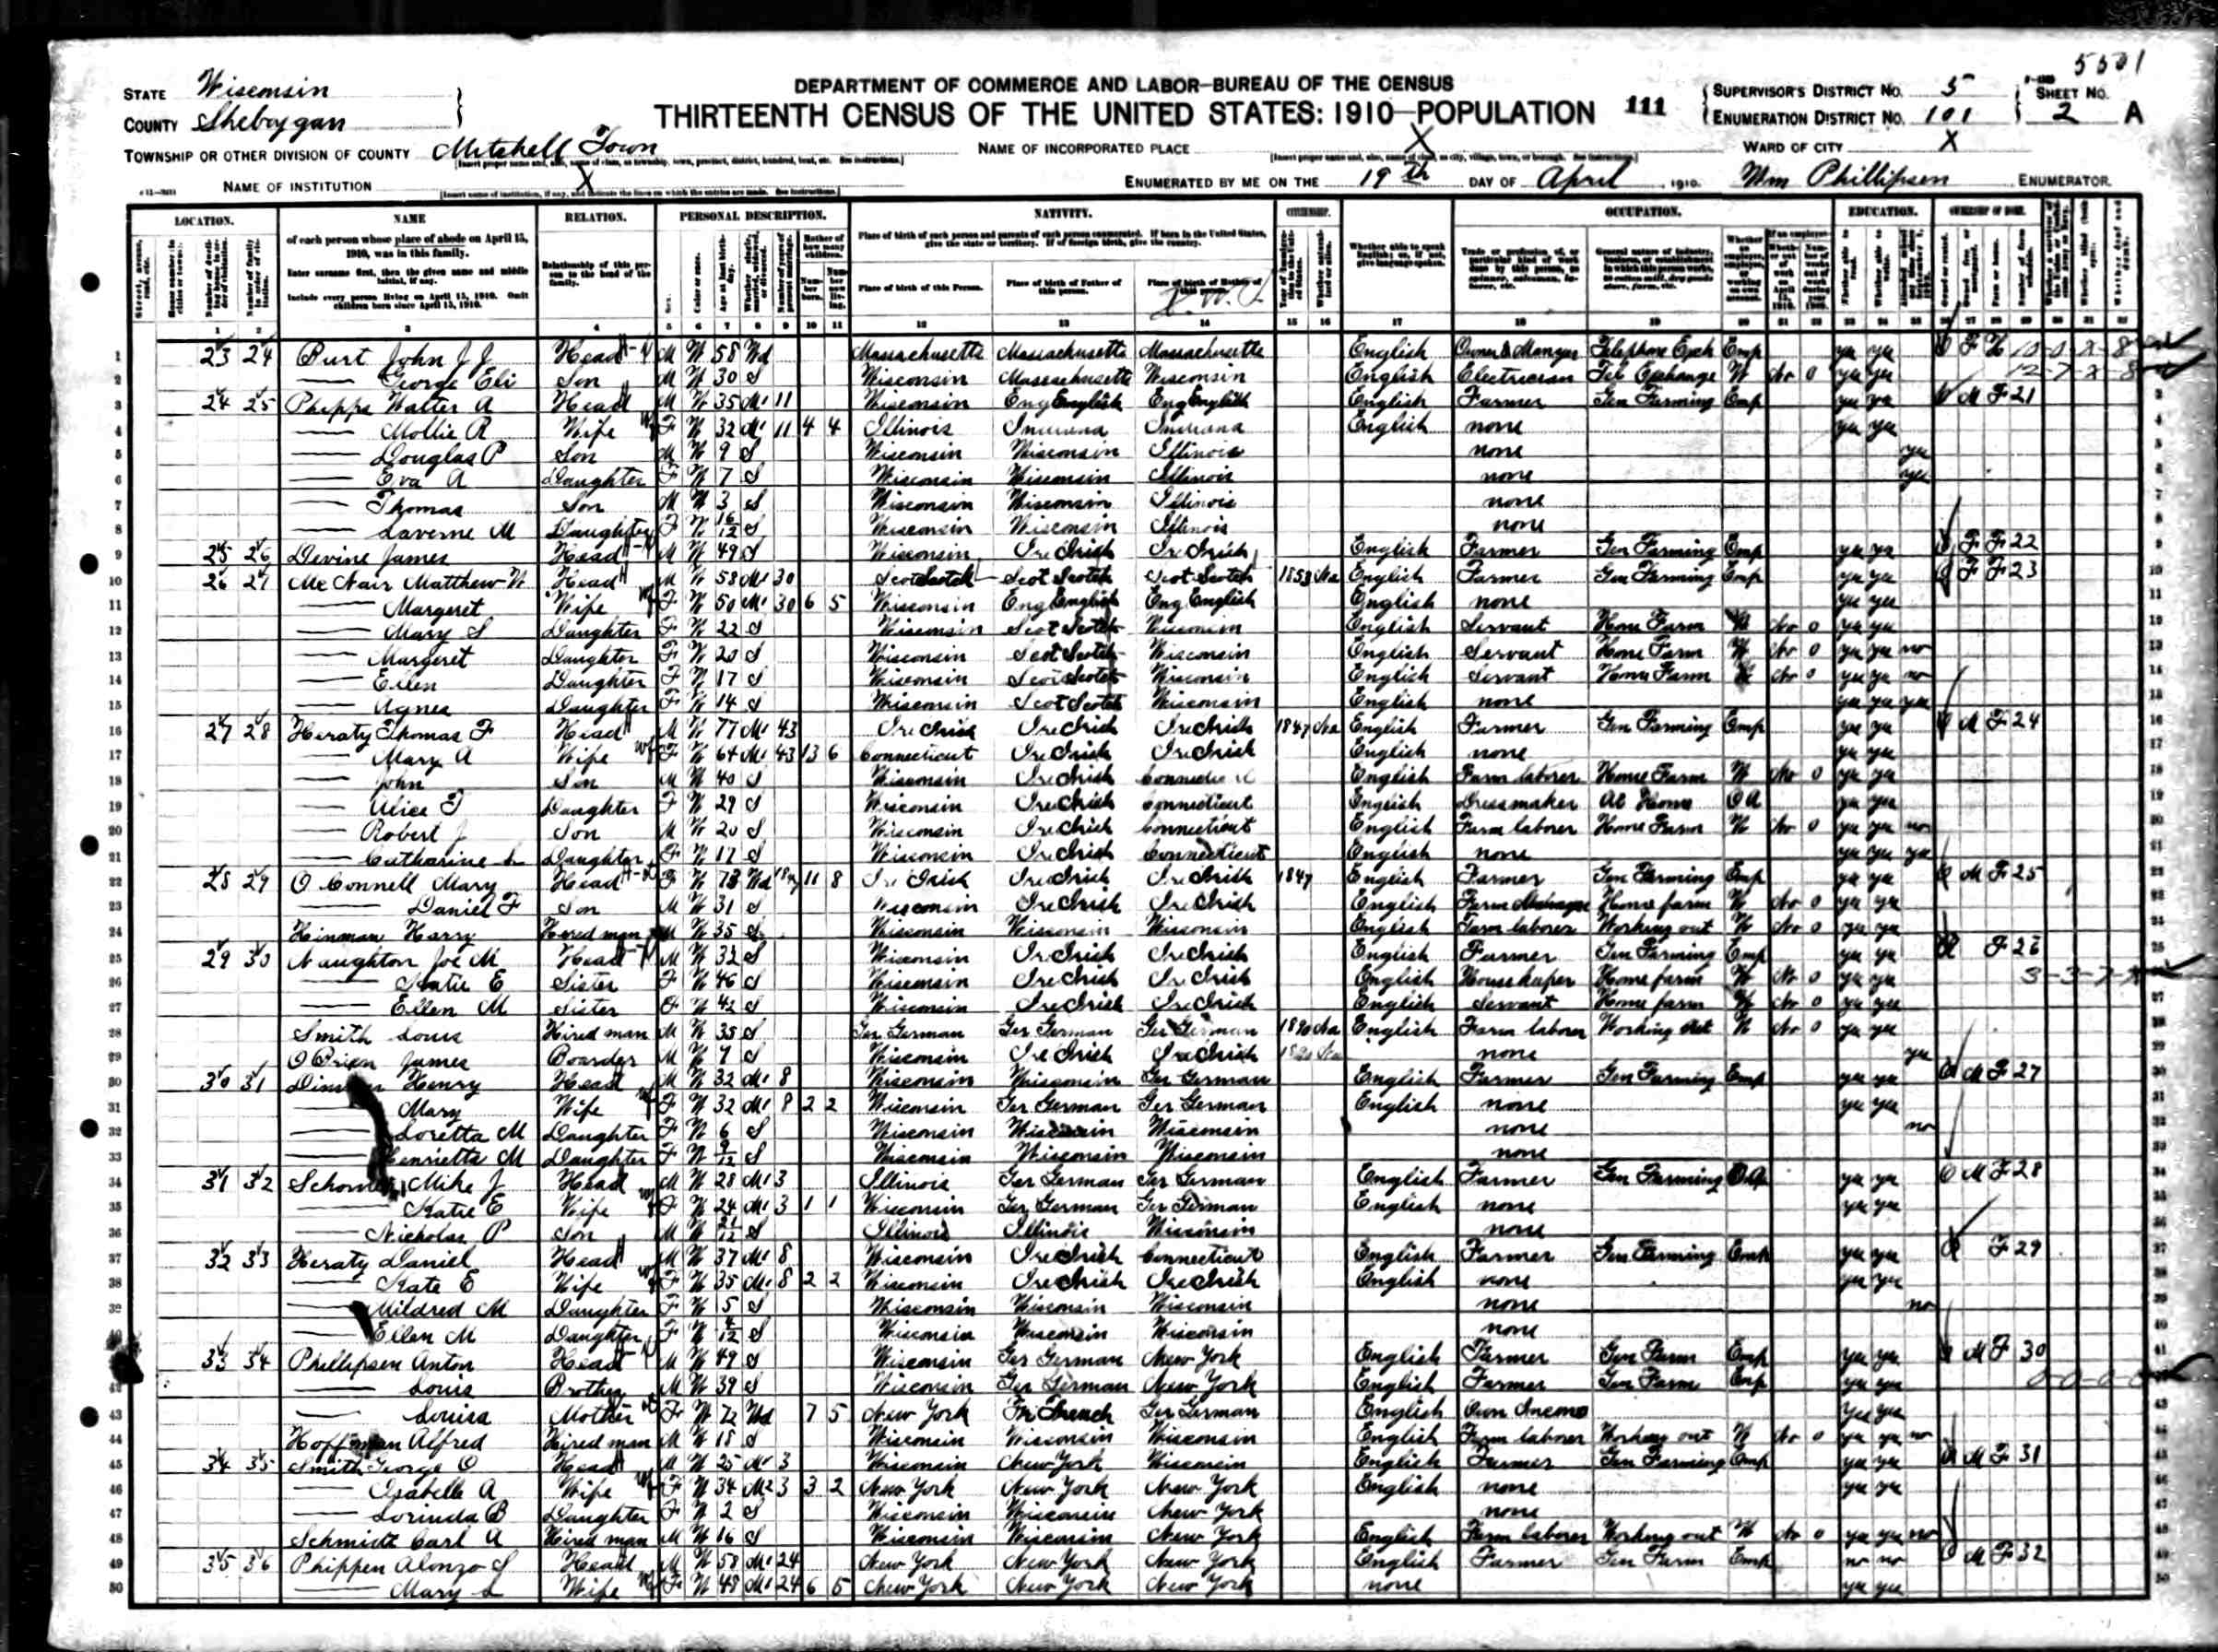 5501
STATE Wisconsin
COUNTY Sheboygan
DEPARTMENT OF COMMERCE AND LABOR—BUREAU OF THE CENSUS
THIRTEENTH CENSUS OF THE UNITED STATES: 1910—POPULATION 111
SUPERVISOR'S DISTRICT NO. 5
ENUMERATION DISTRICT NO. 101
SHEET NO. 2 A
TOWNSHIP OR OTHER DIVISION OF COUNTY Mitchell Town
NAME OF INCORPORATED PLACE X
WARD OF CITY X
NAME OF INSTITUTION X
ENUMERATED BY ME ON THE 19th DAY OF April, 1910. Wm Phillipsen ENUMERATOR.
LOCATION. NAME RELATION. PERSONAL DESCRIPTION. NATIVITY. CITIZENSHIP. OCCUPATION. EDUCATION. OWNERSHIP OF HOME.
of each person whose place of abode on April 15, 1910, was in this family.
Enter surname first, then the given name and middle initial, if any.
Include every person living on April 15, 1910. Omit children born since April 15, 1910.
Relationship of this person to the head of the family.
Place of birth of each person and parents of each person enumerated. If born in the United States, give the state or territory. If of foreign birth, give the country.
Place of birth of this Person. Place of birth of Father of this person. Place of birth of Mother of this person.
1 23 24 Burt John J J Head M W 58 Wd Massachusetts Massachusetts Massachusetts English Owner & Manger Telephone Exch Emp yes yes O F H
2 George Eli Son M W 30 S Wisconsin Massachusetts Wisconsin English Electrician Tel Exchange W No 0 yes yes
3 24 25 Phipps Walter A Head M W 35 M1 11 Wisconsin Eng English Eng English English Farmer Gen Farming Emp yes yes O M F 21
4 Mollie R Wife F W 32 M1 11 4 4 Illinois Indiana Indiana English none yes yes
5 Douglas P Son M W 9 S Wisconsin Wisconsin Illinois none yes
6 Eva A Daughter F W 7 S Wisconsin Wisconsin Illinois none yes
7 Thomas Son M W 3 S Wisconsin Wisconsin Illinois none
8 Laverne M Daughter F W 16/12 S Wisconsin Wisconsin Illinois none
9 25 26 Devine James Head M W 49 S Wisconsin Ire Irish Ire Irish English Farmer Gen Farming Emp yes yes O F F 22
10 26 27 Mc Nair Matthew W Head M W 58 M1 30 Scot Scotch Scot Scotch Scot Scotch 1853 Na English Farmer Gen Farming Emp yes yes O F F 23
11 Margeret Wife F W 50 M1 30 6 5 Wisconsin Eng English Eng English English none yes yes
12 Mary S Daughter F W 22 S Wisconsin Scot Scotch Wisconsin English Servant Home Farm W No 0 yes yes
13 Margeret Daughter F W 20 S Wisconsin Scot Scotch Wisconsin English Servant Home Farm W No 0 yes yes no
14 Ellen Daughter F W 17 S Wisconsin Scot Scotch Wisconsin English Servant Home Farm W No 0 yes yes no
15 Agnes Daughter F W 14 S Wisconsin Scot Scotch Wisconsin English none yes yes yes
16 27 28 Heraty Thomas F Head M W 77 M1 43 Ire Irish Ire Irish Ire Irish 1847 Na English Farmer Gen Farming Emp yes yes O M F 24
17 Mary A Wife F W 64 M1 43 13 6 Connecticut Ire Irish Ire Irish English none yes yes
18 John Son M W 40 S Wisconsin Ire Irish Connecticut English Farm laborer Home Farm W No 0 yes yes
19 Alice T Daughter F W 29 S Wisconsin Ire Irish Connecticut English Dressmaker At Home OA yes yes
20 Robert J Son M W 20 S Wisconsin Ire Irish Connecticut English Farm laborer Home Farm W No 0 yes yes no
21 Catharine L Daughter F W 17 S Wisconsin Ire Irish Connecticut English none yes yes yes
22 28 29 O Connell Mary Head F W 73 Wd 11 8 Ire Irish Ire Irish Ire Irish 1847 English Farmer Gen Farming Emp yes yes O M F 25
23 Daniel F Son M W 31 S Wisconsin Ire Irish Ire Irish English Farm Manager Home farm W No 0 yes yes
24 Hinman Harry Hired man M W 35 S Wisconsin Wisconsin Wisconsin English Farm laborer Working out W No 0 yes yes
25 29 30 Naughton Joe M Head M W 32 S Wisconsin Ire Irish Ire Irish English Farmer Gen Farming Emp yes yes R F 26
26 Katie E Sister F W 46 S Wisconsin Ire Irish Ire Irish English Housekeeper Home farm W No 0 yes yes
27 Ellen M Sister F W 42 S Wisconsin Ire Irish Ire Irish English Servant Home farm W No 0 yes yes
28 Smith Louis Hired man M W 35 S Ger German Ger German Ger German 1890 Na English Farm laborer Working out W No 0 yes yes
29 O Brien James Boarder M W 7 S Wisconsin Ire Irish Ire Irish none yes
30 30 31 Henry Head M W 32 M1 8 Wisconsin Wisconsin Ger German English Farmer Gen Farming Emp yes yes O M F 27
31 Mary Wife F W 32 M1 8 2 2 Wisconsin Ger German Ger German English none yes yes
32 Loretta M Daughter F W 6 S Wisconsin Wisconsin Wisconsin none no
33 Henrietta M Daughter F W 9/12 S Wisconsin Wisconsin Wisconsin none
34 31 32 Mike J Head M W 28 M1 3 Illinois Ger German Ger German English Farmer Gen Farming OA yes yes O M F 28
35 Katie E Wife F W 24 M1 3 1 1 Wisconsin Ger German Ger German English none yes yes
36 Nicholas P Son M W 21/12 S Illinois Illinois Wisconsin none
37 32 33 Heraty Daniel Head M W 37 M1 8 Wisconsin Ire Irish Connecticut English Farmer Gen Farming Emp yes yes R F 29
38 Kate E Wife F W 35 M1 8 2 2 Wisconsin Ire Irish Ire Irish English none yes yes
39 Mildred M Daughter F W 5 S Wisconsin Wisconsin Wisconsin none no
40 Ellen M Daughter F W 4/12 S Wisconsin Wisconsin Wisconsin none
41 33 34 Phillipsen Anton Head M W 49 S Wisconsin Ger German New York English Farmer Gen Farm Emp yes yes O M F 30
42 Louis Brother M W 39 S Wisconsin Ger German New York English Farmer Gen Farm Emp yes yes
43 Louisa Mother F W 72 Wd 7 5 New York Fr French Ger German English Own Income yes yes
44 Hoffman Alfred Hired man M W 18 S Wisconsin Wisconsin Wisconsin English Farm laborer Working out W No 0 yes yes no
45 34 35 Smith George O Head M W 25 M1 3 Wisconsin New York Wisconsin English Farmer Gen Farming Emp yes yes O M F 31
46 Isabelle A Wife F W 34 M2 3 3 2 New York New York New York English none yes yes
47 Lorinda B Daughter F W 2 S Wisconsin Wisconsin New York none
48 Schmidt Carl A Hired man M W 16 S Wisconsin Wisconsin New York English Farm laborer Working out W No 0 yes yes no
49 35 36 Phippen Alonzo S Head M W 58 M1 24 New York New York New York English Farmer Gen Farm Emp no no O M F 32
50 Mary L Wife F W 48 M1 24 6 5 New York New York New York none yes yes